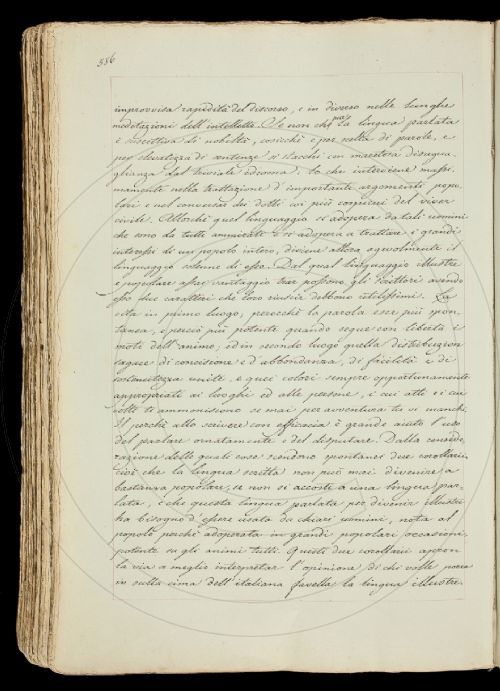 386
improvvisa rapidità del discorso, e in diverso nelle lunghe
meditazioni dell'intelletto. Se non che può la lingua parlata
è suscettiva di nobiltà, cosicchè e per scelta di parole, e
per elevatezza di sentenze si stacchi con maestosa disegua
glianza dal triviale idioma, lo che interviene massi
mamente nella trattazione d'importanti argomenti popo
lari e nel conversar dei dotti coi più cospicui del viver
civile. Allorchè quel linguaggio si adopera da tali uomini
che sono da tutti ammirati e si adopera a trattare i grandi
interessi di un popolo intero, diviene allora agevolmente il
linguaggio solenne di esso. Dal qual linguaggio illustre
e popolare assai vantaggio trar possono gli scrittori avendo
esso due caratteri che loro riuscir debbono utilissimi. La
vita in primo luogo, perocchè la parola esce più spon
tanea, e perciò più potente quando segue con libertà i
moti dell'animo; ed in secondo luogo quella distribuzion
sagace di concisione e d'abbondanza, di facilità e di
sostenutezza unite, e quei colori sempre opportunamente
appropriati ai luoghi ed alle persone, i cui atti e i cui
volti ti ammoniscono se mai per avventura tu vi manchi.
Il perchè allo scriver con efficacia è grande aiuto l'uso
del parlare ornatamente e del disputare. Dalla conside
razione delle quali cose scendono spontanei due corollarii,
cioè che la lingua scritta non può mai divenire a
bastanza popolare, se non si accosta a una lingua par
lata, e che questa lingua parlata per divenir illustre
ha bisogno d'essere usata da chiari uomini, nota al
popolo perchè adoperata in grandi popolari occasioni,
potente su gli animi tutti. Questi due corollarii apron
la via a meglio interpretar l'opinione di chi volle porre
in sulla cima dell'italiana favella la lingua illustre.